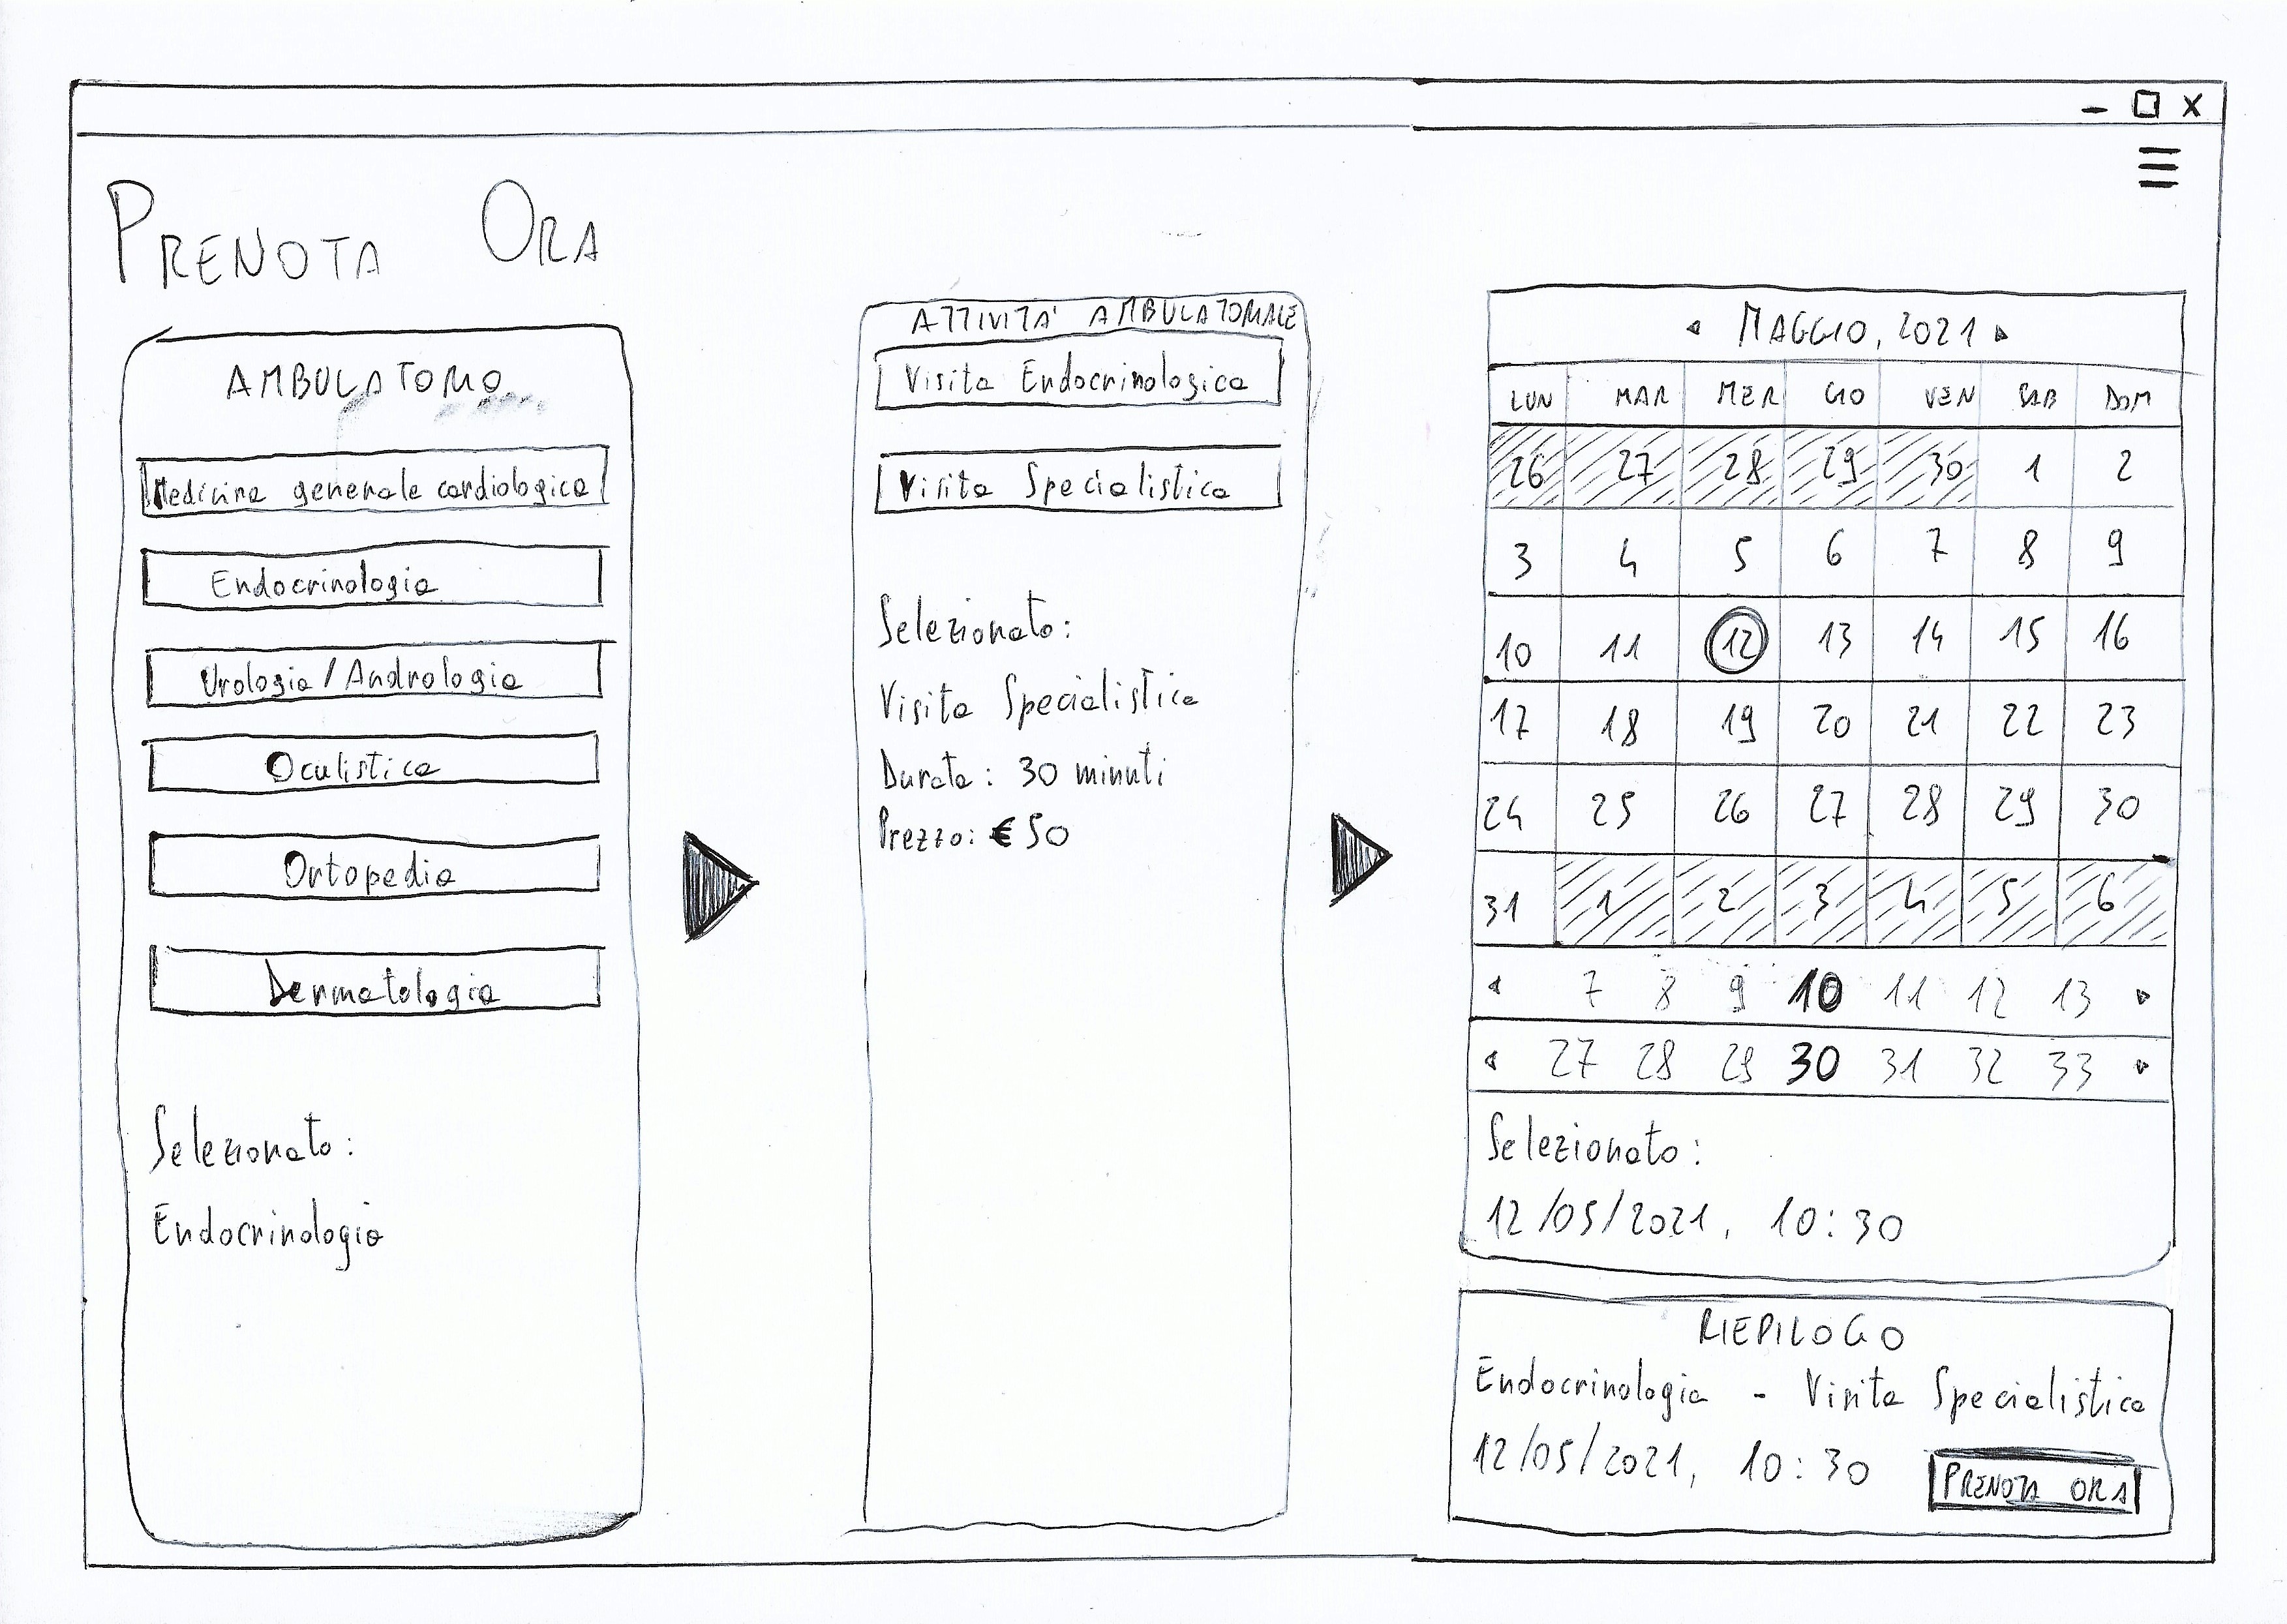 PRENOTA ORA
AMBULATORIO
Medicina generale cardiologica
Endocrinologia
Urologia / Andrologia
Oculistica
Ortopedia
Dermatologia
Selezionato:
Endocrinologia
ATTIVITA' AMBULATORIALE
Visita Endocrinologica
Visita Specialistica
Selezionato:
Visita Specialistica
Durata: 30 minuti
Prezzo: € 50
MAGGIO, 2021
LUN MAR MER GIO VEN SAB DOM
26 27 28 29 30 1 2
3 4 5 6 7 8 9
10 11 12 13 14 15 16
17 18 19 20 21 22 23
24 25 26 27 28 29 30
31 1 2 3 4 5 6
7 8 9 10 11 12 13
27 28 29 30 31 32 33
Selezionato:
12/05/2021, 10:30
RIEPILOGO
Endocrinologia - Visita Specialistica
12/05/2021, 10:30
PRENOTA ORA